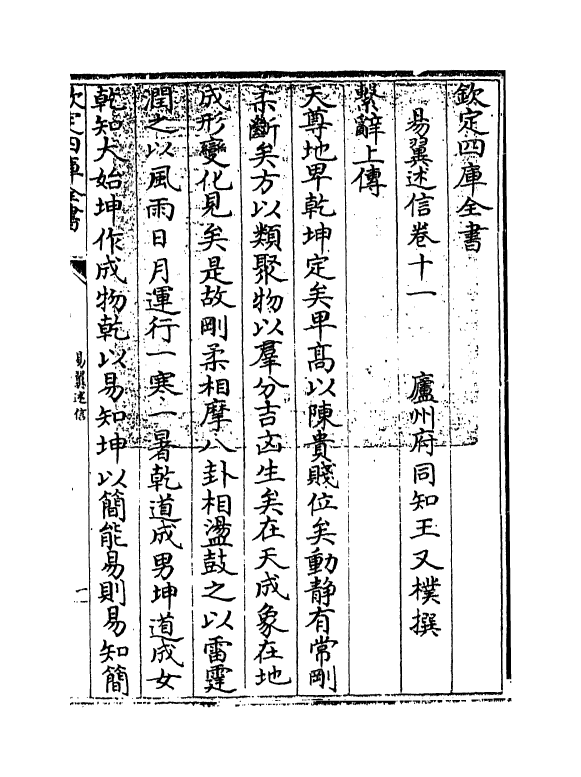 欽定四庫全書
易翼述信卷十一　　廬州府同知王又樸撰
繫辭上傳
天尊地卑乾坤定矣卑髙以陳貴賤位矣動静有常剛
柔斷矣方以類聚物以羣分吉凶生矣在天成象在地
成形變化見矣是故剛柔相摩八卦相盪鼓之以雷霆
潤之以風雨日月運行一寒一暑乾道成男坤道成女
乾知大始坤作成物乾以易知坤以簡能易則易知簡
欽定四庫全書
易翼述信
一